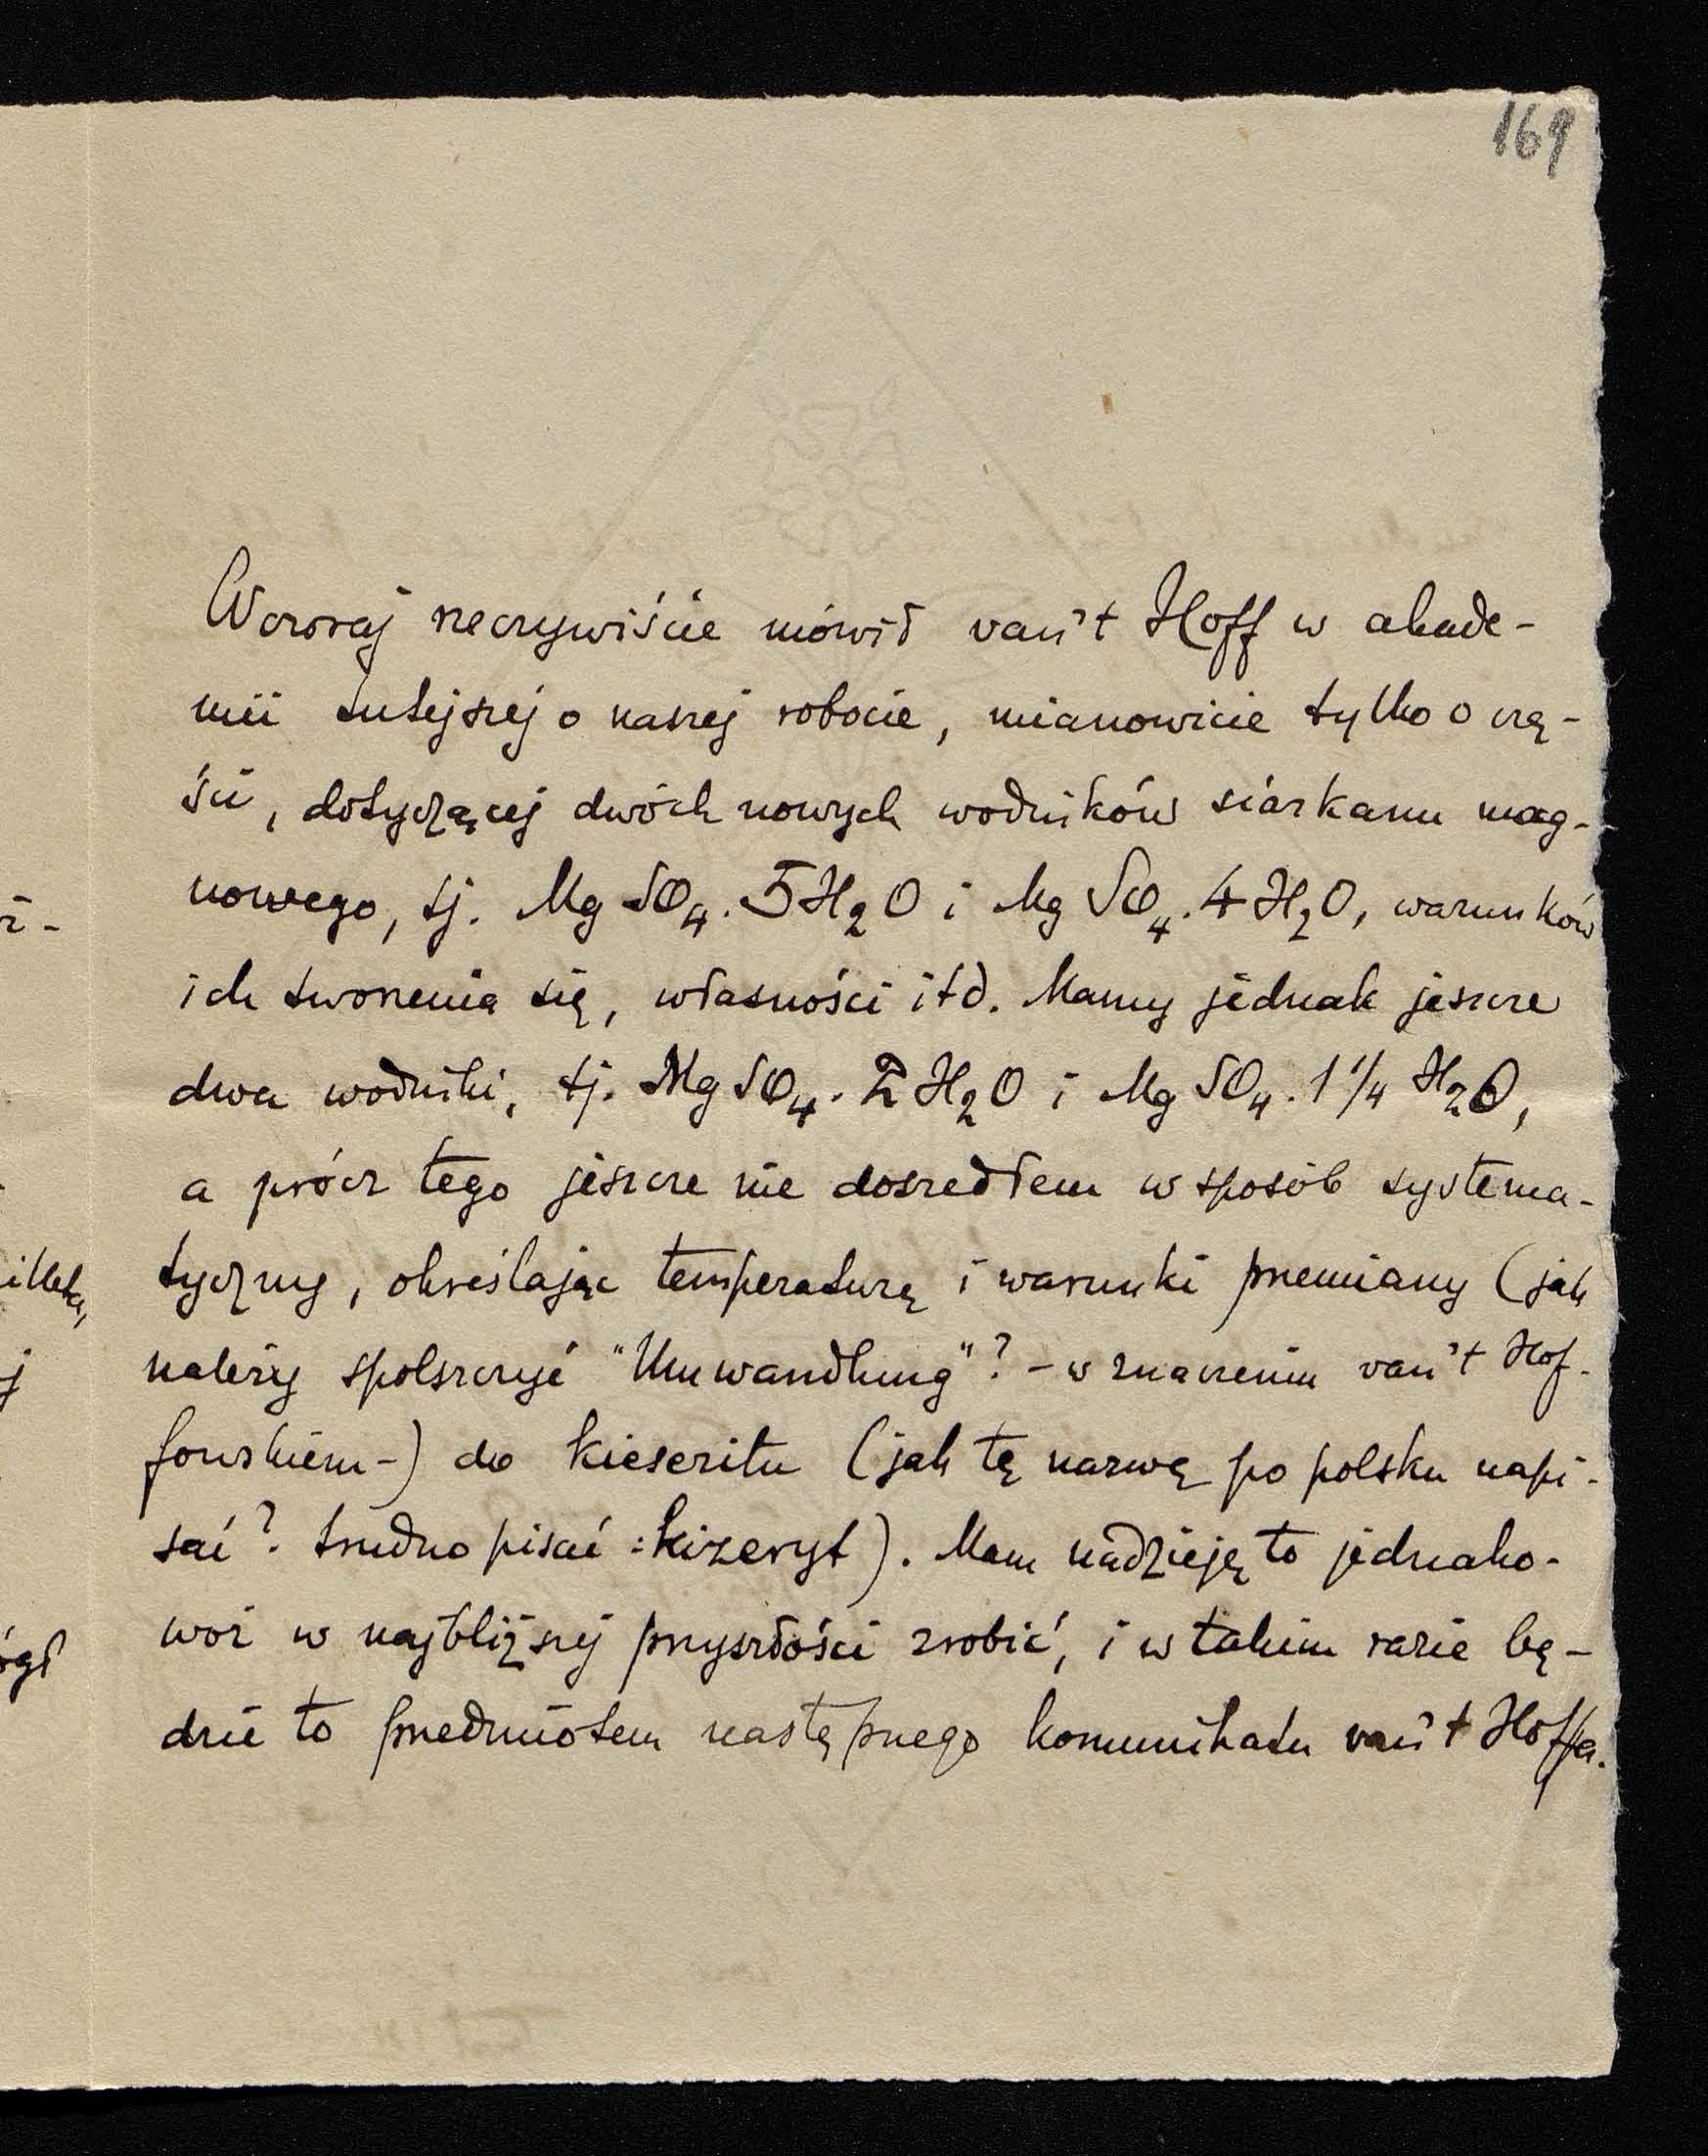 169
Wczoraj rzeczywiście mówił van't Hoff w akade-
mii tutejszej o naszej robocie, mianowicie tylko o czę-
ści, dotyczącej dwóch nowych wodników siarkanu mag-
nowego, tj. MgSO₄. 5H₂O i MgSO₄. 4H₂O, warunków
ich tworzenia się, własności itd. Mamy jednak jeszcze
dwa wodniki, tj. MgSO₄. 2H₂O i MgSO₄. 1 1/4 H₂O,
a prócz tego jeszcze nie doszedłem w sposób systema-
tyczny, określając temperaturę i warunki przemiany (jak
należy spolszczyć "Umwandlung"? - w znaczeniu van't Hof-
fowskiem-) do kieseritu (jak tę nazwę po polsku napi-
sać? trudno pisać: kizeryt). Mam nadzieję to jednako-
woż w najbliższej przyszłości zrobić, i w takim razie bę-
dzie to przedmiotem następnego komunikatu van't Hoffa.